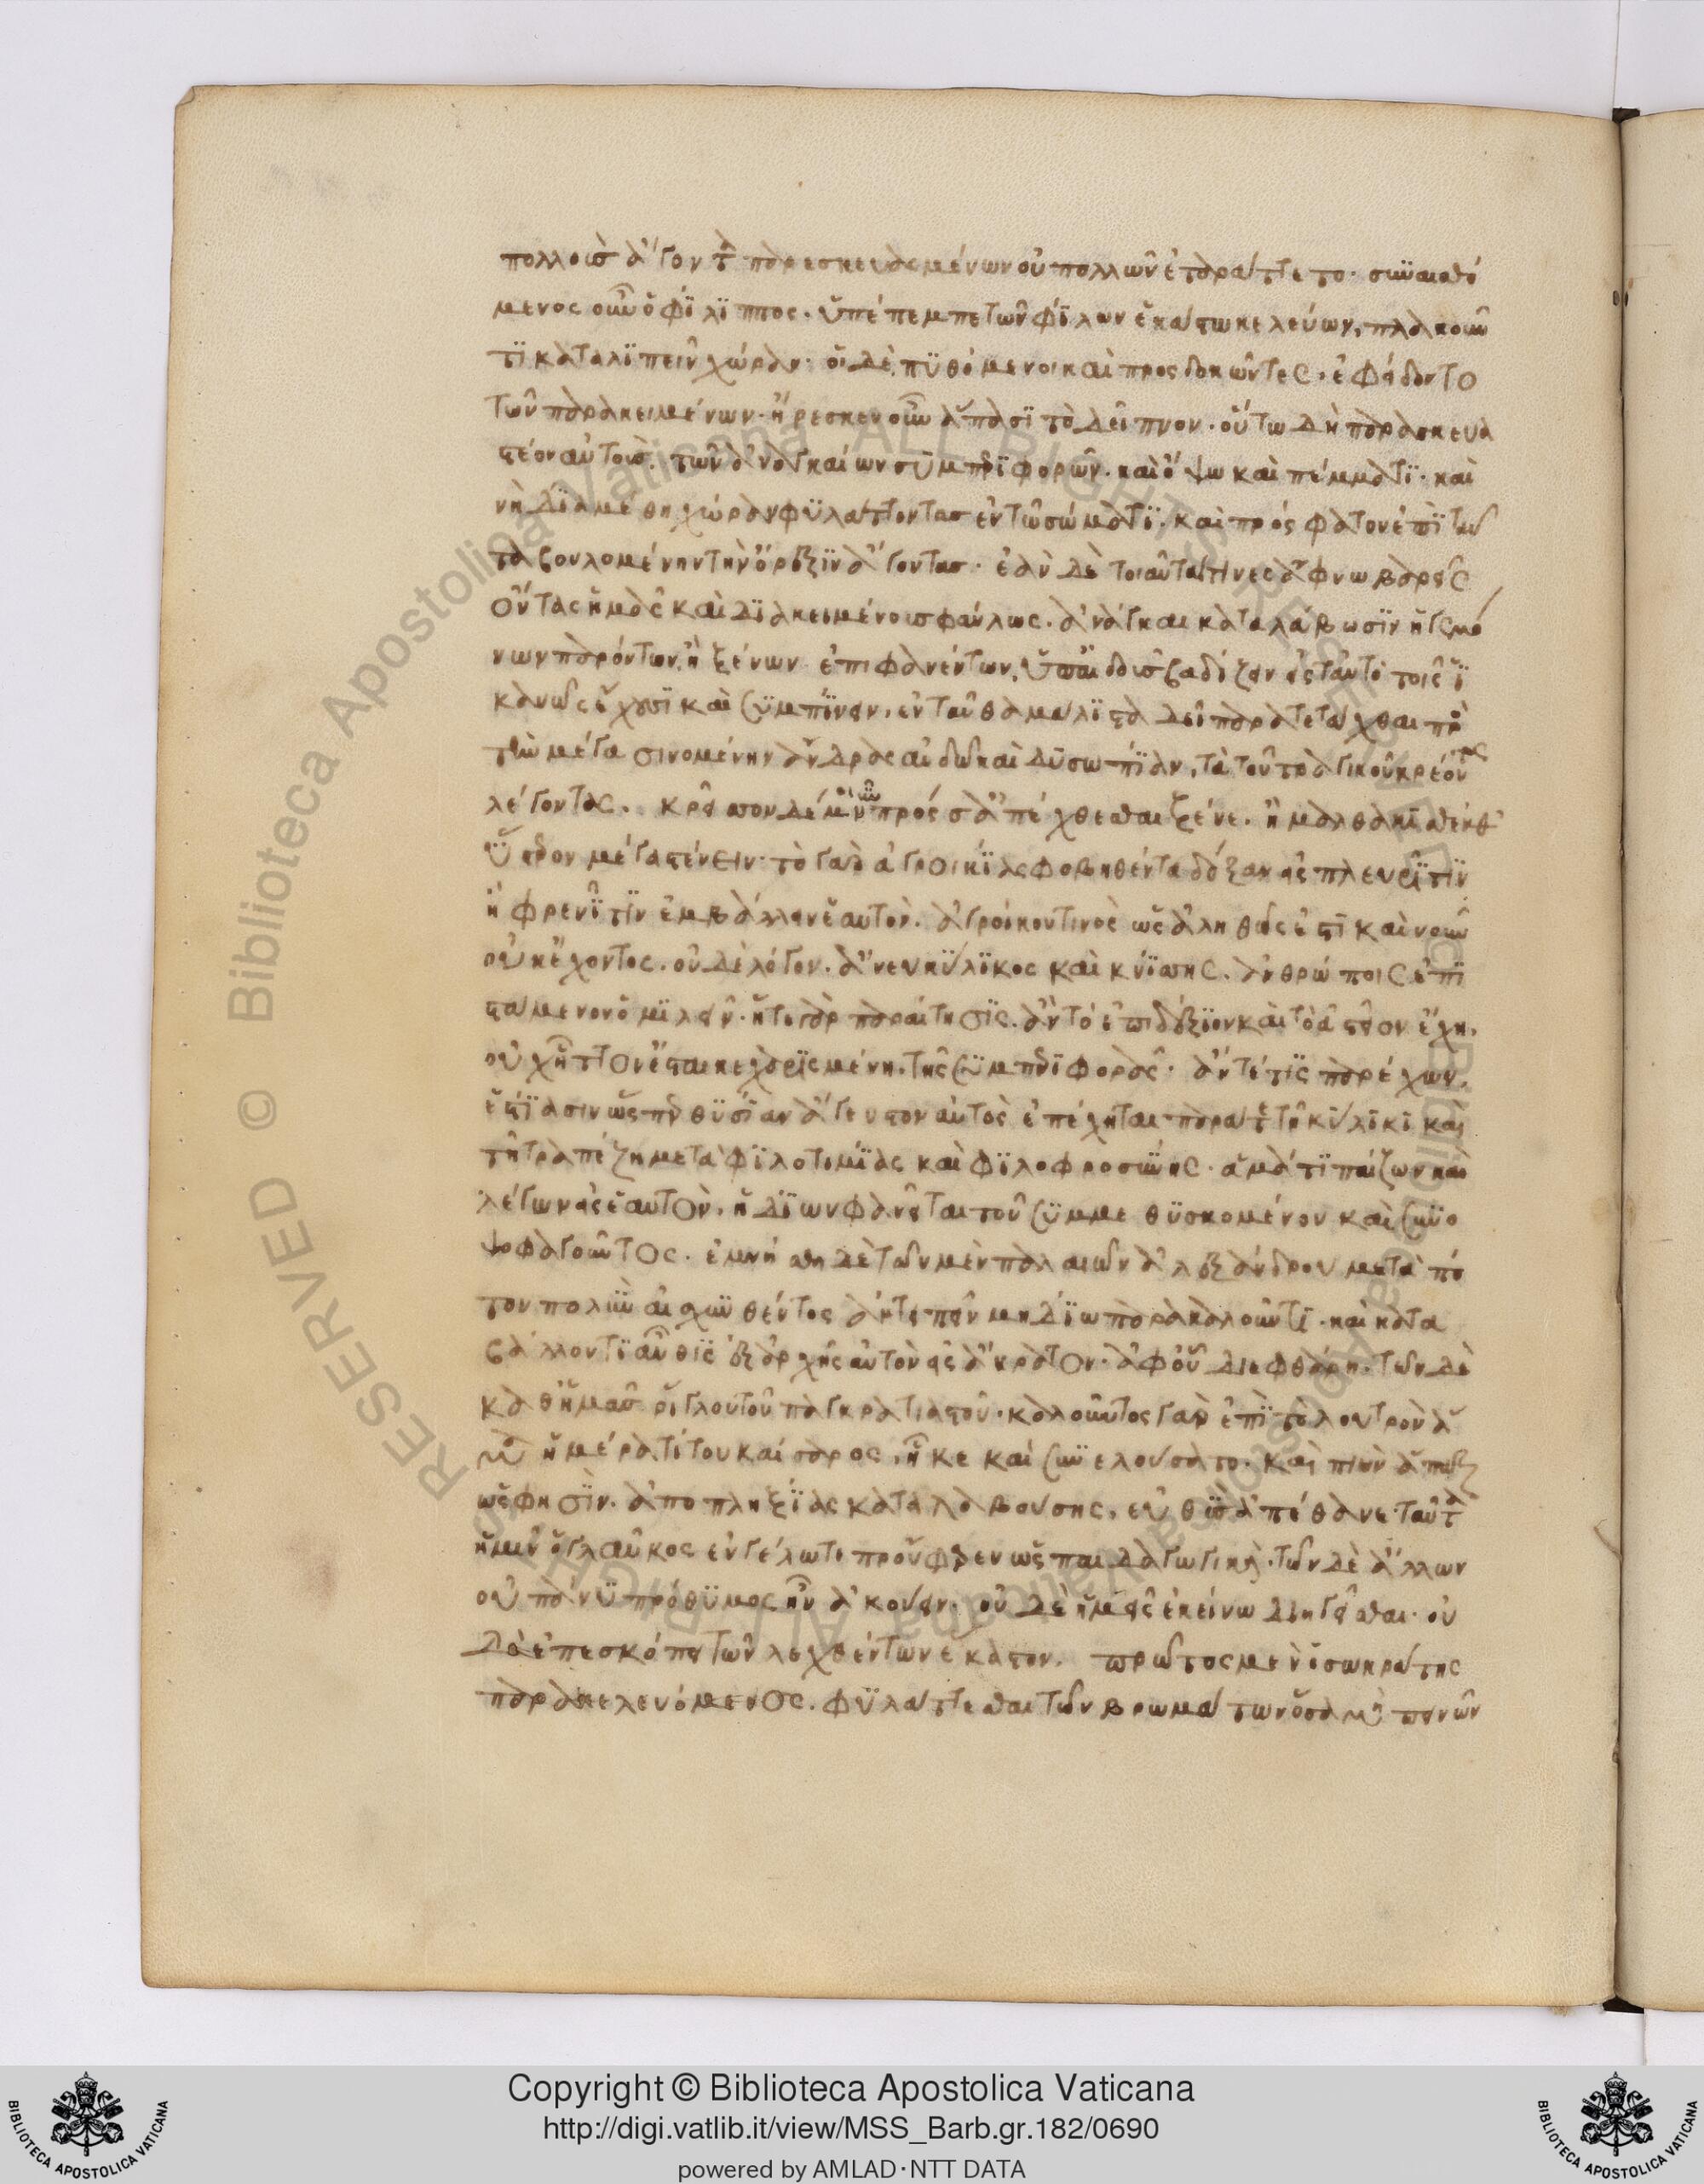 πολλοὺς ἄγοντα παρεσκευασμένων οὐ πολλῶν ἐταράττετο· συναισθό
μενος οὖν ὁ φίλιππος. ὑπέπεμπε τῶν φίλων ἑκάστω κελεύων, πλακοῦν
τι καταλιπεῖν χώραν· οἱ δὲ πυθόμενοι καὶ προσδοκῶντες, ἐφείδοντο
τῶν παρακειμένων· ἤρκεσεν οὖν ἅπασι τὸ δεῖπνον. οὕτω δὴ παρασκευα
στέον αὐτοὺς. τῶν ἀναγκαίων συμπεριφορῶν. καὶ ὄψω καὶ πέμματι. καὶ
νὴ δία μέθη χώραν φυλάττοντας ἐν τῶ σώματι. καὶ πρόσφατον ἐπὶ ταῦ
τα βουλομένην τὴν ὄρεξιν ἄγοντας. ἐὰν δὲ τοιαῦται τινὲς ἄφνω βαρεῖς
ὄντας ἡμᾶς καὶ διακειμένους φαύλως. ἀνάγκαι καταλάβωσιν ἡγεμό
νων παρόντων, ἢ ξένων ἐπιφανέντων, ὑπ αἰδοῦς βαδίζειν εἰς ταὐτὸ τοῖς ἱ
κανῶς ἔχουσι καὶ συμπίνειν, ἐνταῦθα μάλιστα δεῖ παρατετάχθαι πρὸς
τὴν μέγα σινομένην ἄνδρας αἰδῶ καὶ δυσωπίαν, τὰ τοῦ τραγικοῦ κρέοντος
λέγοντας. κρεῖσσον δέ μοι νῦν πρός σ' ἀπέχθεσθαι ξένε. ἢ μαλθακισθένθ'
ὕστερον μέγα στένειν· τὸ γὰρ ἀγροικίας φοβηθέντα δόξαν εἰς πλευρῖτιν
ἢ φρενῖτιν ἐμβάλλειν ἑαυτὸν. ἀγροίκου τινὸς ὡς ἀληθῶς ἐστὶ καὶ νοῦν
οὐκ ἔχοντος. οὐδὲ λόγον. ἄνευ κύλικος καὶ κνίσσης. ἀνθρώποις ἐπι
σταμένου ὁμιλεῖν. ἥ τε γὰρ παραίτησις. ἂν τὸ ἐπιδέξιον καὶ τὸ ἀστεῖον ἔχη.
οὐχ ἧττον ἔσται κεχαρισμένη. τῆς συμπεριφορᾶς. ἄν τέ τις παρέχων.
ἑστίασιν ὥσπερ θυσίαν ἄγευστον αὐτὸς ἐπέχηται· παρατε τῆ κύλικι καὶ
τῆ τραπέζη μετὰ φιλοτιμίας καὶ φιλοφροσύνης. ἅμα τι παίζων καὶ
λέγων εἰς ἑαυτὸν, ἡδίων φανεῖται τοῦ συμμεθυσκομένου καὶ συνο
ψοφαγοῦντος. ἐμνήσθη δὲ τῶν μὲν παλαιῶν ἀλεξάνδρου μετὰ πό
τον πολὺν αἰσχυνθέντος ἀντειπεῖν μηδίω παρακαλοῦντι. καὶ κατα
βάλλοντι αὖθις ἐξ ἀρχῆς αὑτὸν εἰς ἄκρατον. ἀφ' οὗ διεφθάρη. τῶν δὲ
καθ' ἡμᾶς ῥίγλου τοῦ παγκρατιαστοῦ. καλοῦντος γὰρ ἐπὶ τὸ λουτρὸν ἅ
μ' ἡμέρα τίτου καίσαρος, ἧκε καὶ συνελούσατο. καὶ πιὼν ἅπαξ
ὥς φησὶν. ἀποπληξίας καταλαβούσης, εὐθὺς ἀπέθανε. ταῦτα
ἡμῖν ὁ γλαῦκος ἐν γέλωτι προὔφερεν ὡς παιδαγωγικὰ. τῶν δὲ ἄλλων
οὐ πάνυ πρόθυμος ἦν ἀκούειν. οὐδὲ ἡμεῖς ἐκείνω διηγεῖσθαι. οὐ
δὲ ἐπεσκόπει τῶν λεχθέντων ἕκαστον. πρῶτος μὲν ὁ σωκράτης
παρακελευόμενος. φυλάττεσθαι τῶν βρωμάτων ὅσα μὴ πεινῶν